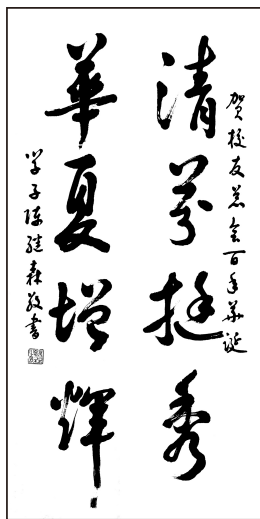 贺校友总会百年華诞
清芬挺秀
華夏增輝
学子陈继森敬書